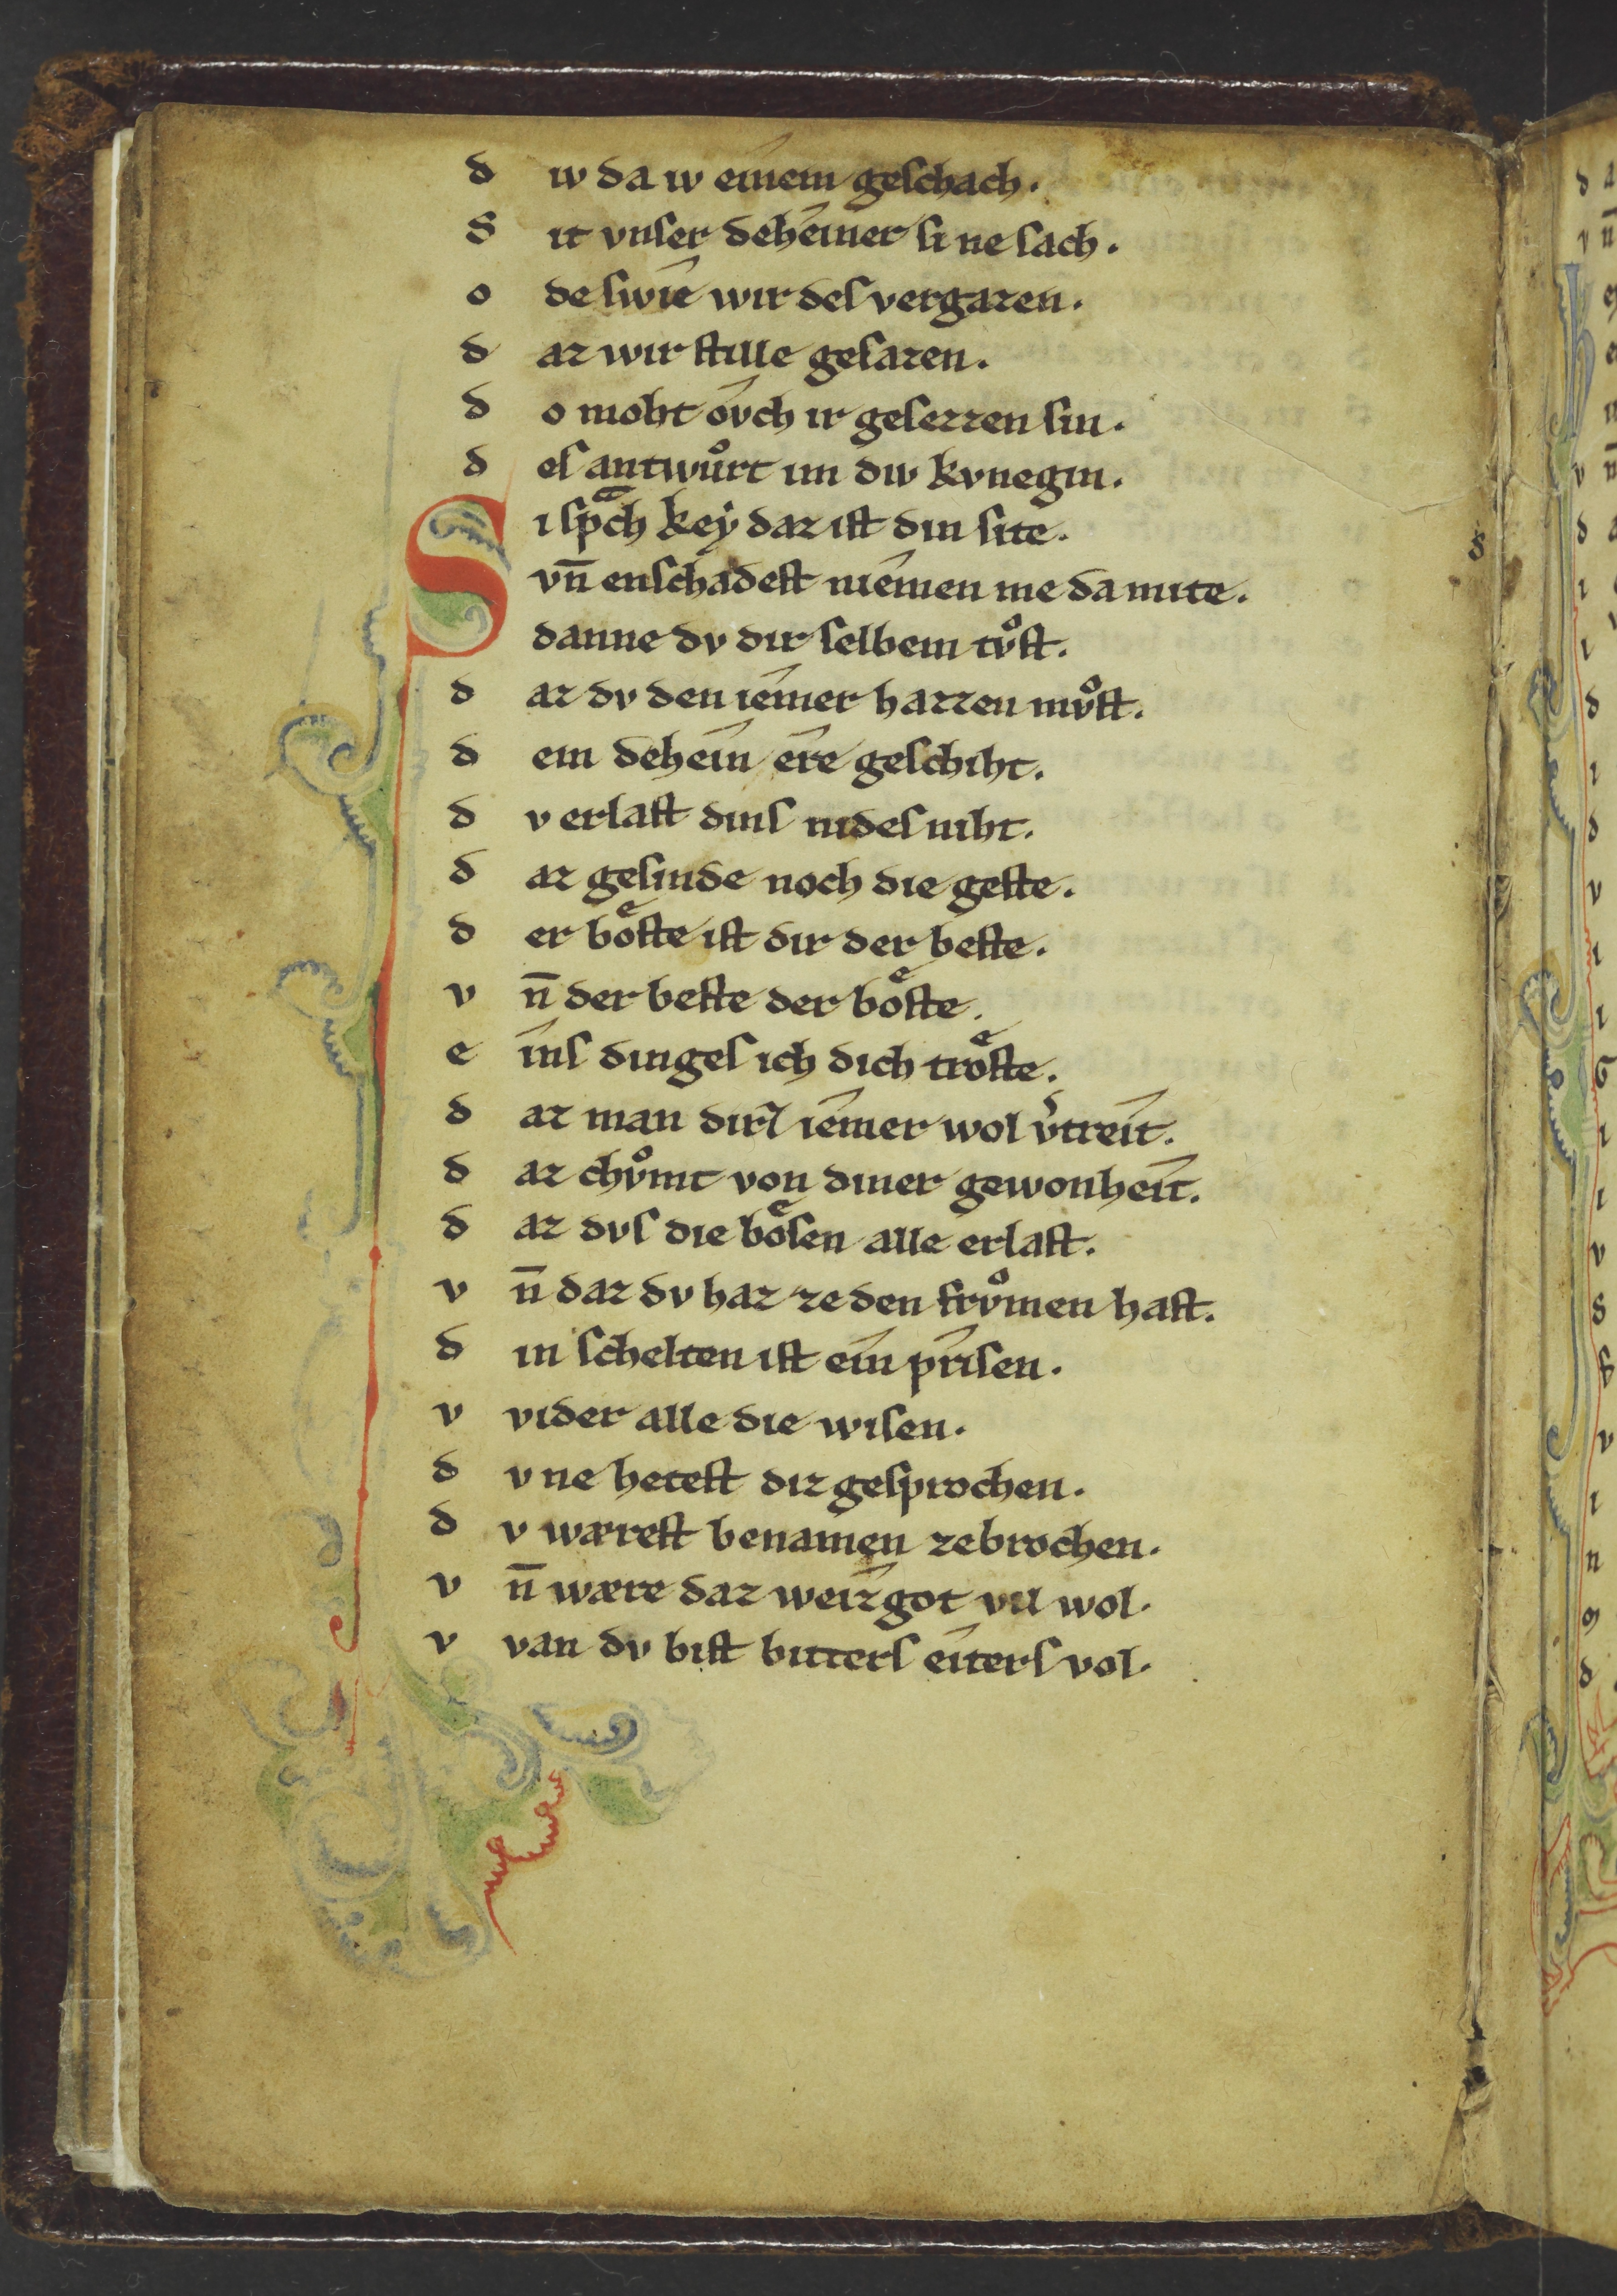 d iw da iv einem geschach.
S it vnser deheiner si ne sach.
o de swie wir des vergazen.
d az wir stille gesazen.
d o moht ovch ir gesezzen sin.
d es antwůrt im div kvnegin.
Si spͣch key daz ist din site.
vn̄ enschadest niemen me da mite.
danne dv dir selbem tv̊st.
d az dv den iemer hazzen mv̊st.
d em dehein ere geschiht.
d v erlast dins nides niht.
d az gesinde noch die geste.
d er boͤste ist dir der beste.
v n̄ der beste der boͤste.
e ins dinges ich dich troͤste.
d az man dirs iemer wol v͛treit.
d az chv̊mt von diner gewonheit.
d az dvs die boͤsen alle erlast.
v n̄ daz dv haz ze den frv̊men hast.
d in schelten ist ein prisen.
v vider alle die wisen.
d v ne hetest diz gesprochen.
d v wærest benamen zebrochen.
v n̄ wære daz weizgot vil wol.
v van dv bist bitters eiters vol.